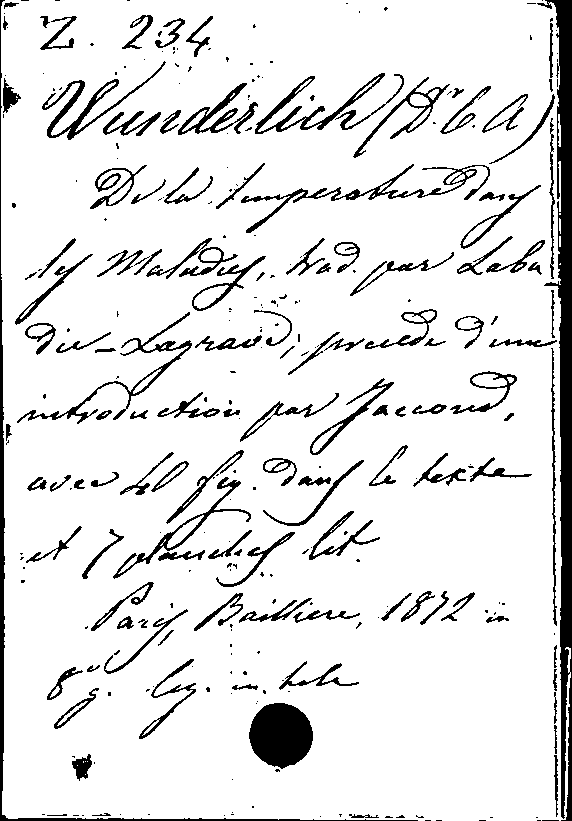 Z. 234
Wunderlich (Dr. C. A)
De la temperature dans
les Maladies, trad. par Laba
die-Lagrave; precede d'une
introduction par Jaccoud,
avec 40 fig. dans le texte
et 7 planches lit.
Paris, Bailliere, 1872 in
8º g. leg. in tela